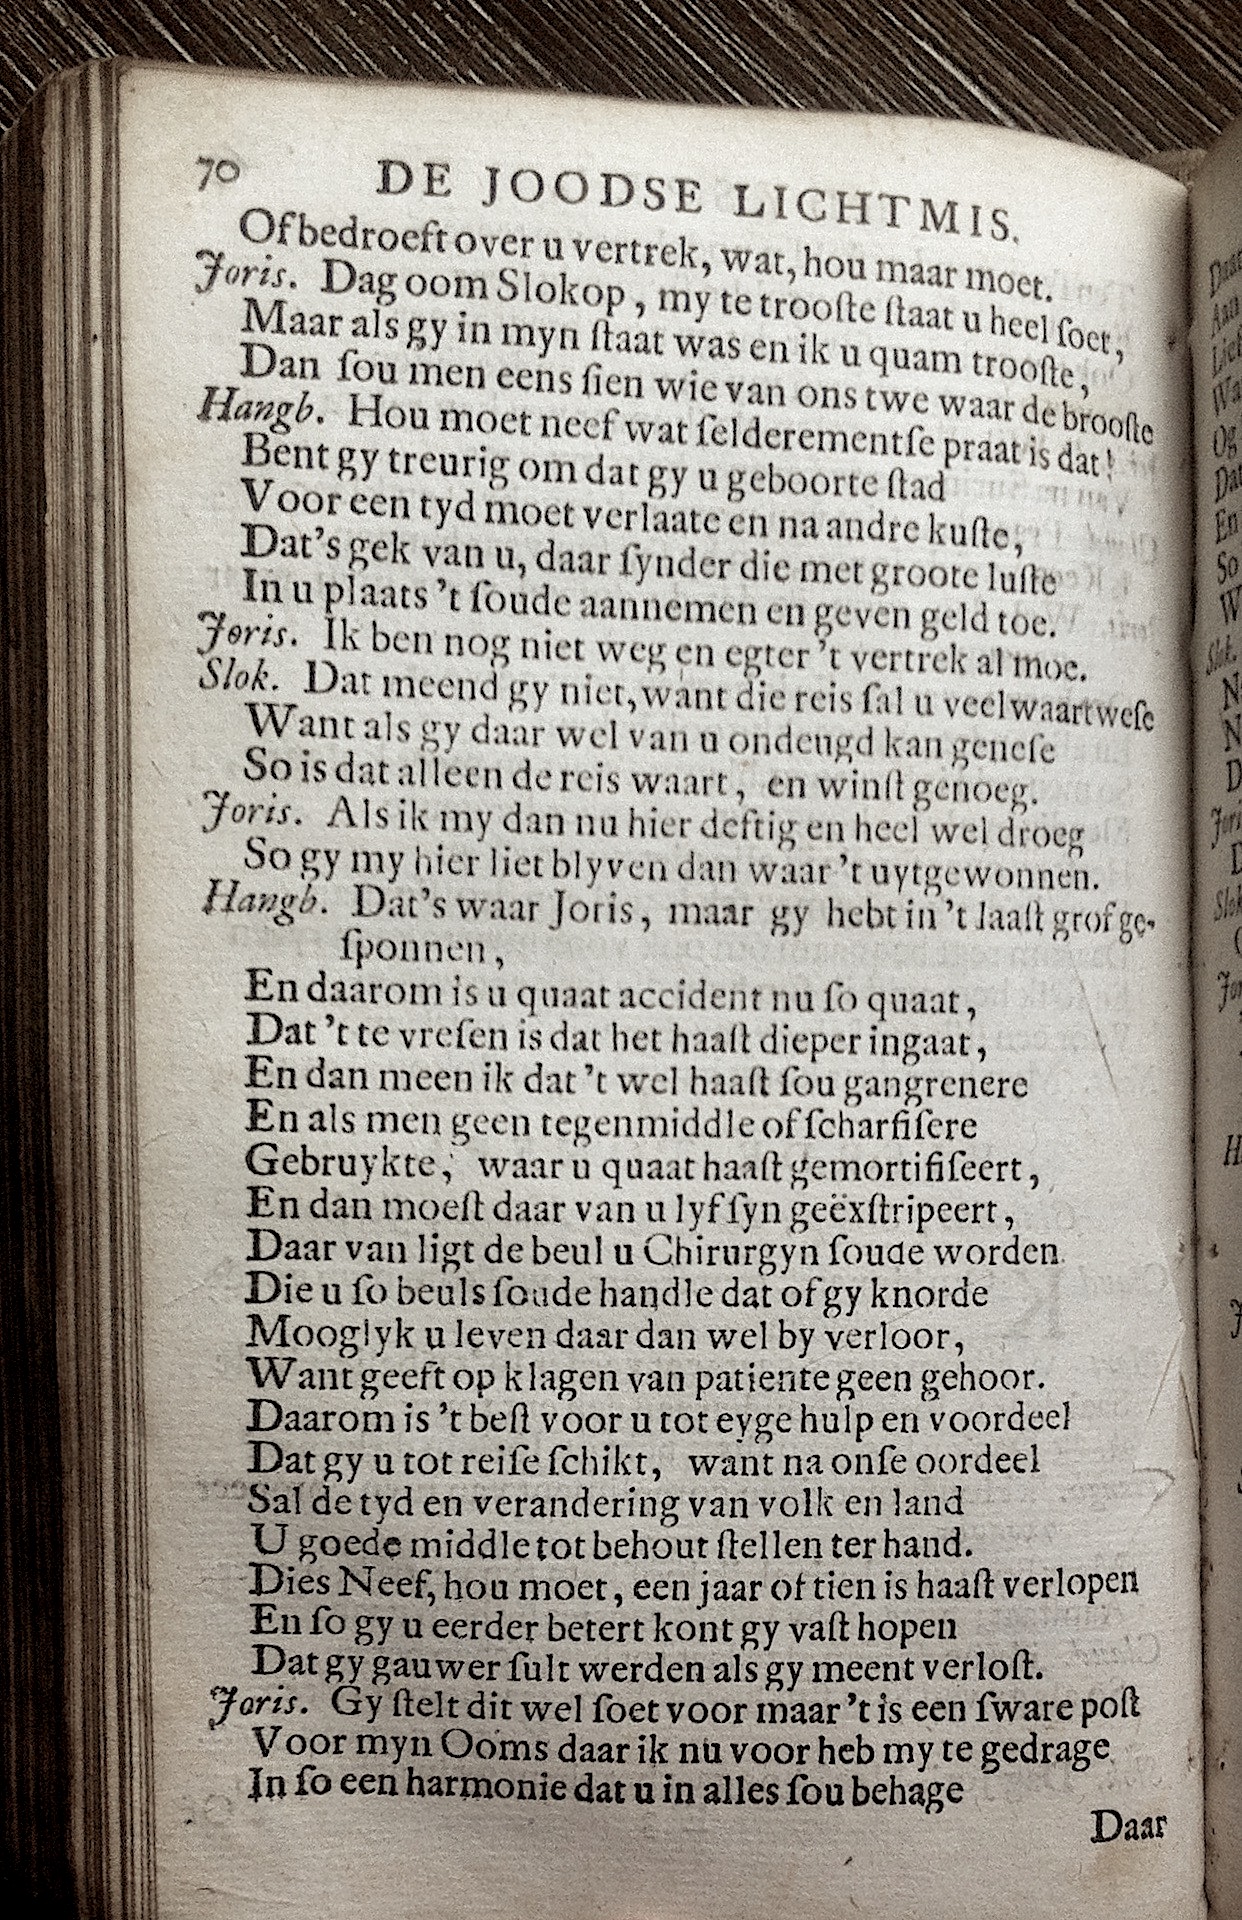 70 DE JOODSE LICHTMIS.
Of bedroeft over u vertrek, wat, hou maar moet.
Joris. Dag oom Slokop, my te trooſte ſtaat u heel ſoet,
Maar als gy in myn ſtaat was en ik u quam trooſte,
Dan ſou men eens ſien wie van ons twe waar de brooſte
Hangb. Hou moet neef wat ſelderementſe praat is dat!
Bent gy treurig om dat gy u geboorte ſtad
Voor een tyd moet verlaate en na andre kuſte,
Dat's gek van u, daar ſynder die met groote luſte
In u plaats 't ſoude aannemen en geven geld toe.
Joris. Ik ben nog niet weg en egter 't vertrek al moe.
Slok. Dat meend gy niet, want die reis ſal u veel waart weſe
Want als gy daar wel van u ondeugd kan geneſe
So is dat alleen de reis waart, en winſt genoeg.
Joris. Als ik my dan nu hier deftig en heel wel droeg
So gy my hier liet blyven dan waar 't uytgewonnen.
Hangb. Dat's waar Joris, maar gy hebt in 't laaſt grof ge-
ſponnen,
En daarom is u quaat accident nu ſo quaat,
Dat 't te vreſen is dat het haaſt dieper ingaat,
En dan meen ik dat 't wel haaſt ſou gangrenere
En als men geen tegenmiddle of ſcharfiſere
Gebruykte, waar u quaat haaſt gemortifiſeert,
En dan moeſt daar van u lyf ſyn geëxſtripeert,
Daar van ligt de beul u Chirurgyn ſoude worden
Die u ſo beuls ſoude handle dat of gy knorde
Mooglyk u leven daar dan wel by verloor,
Want geeft op klagen van patiente geen gehoor.
Daarom is 't beſt voor u tot eyge hulp en voordeel
Dat gy u tot reiſe ſchikt, want na onſe oordeel
Sal de tyd en verandering van volk en land
U goede middle tot behout ſtellen ter hand.
Dies Neef, hou moet, een jaar of tien is haaſt verlopen
En ſo gy u eerder betert kont gy vaſt hopen
Dat gy gauwer ſult werden als gy meent verloſt.
Joris. Gy ſtelt dit wel ſoet voor maar 't is een ſware poſt
Voor myn Ooms daar ik nu voor heb my te gedrage
In ſo een harmonie dat u in alles ſou behage
Daar